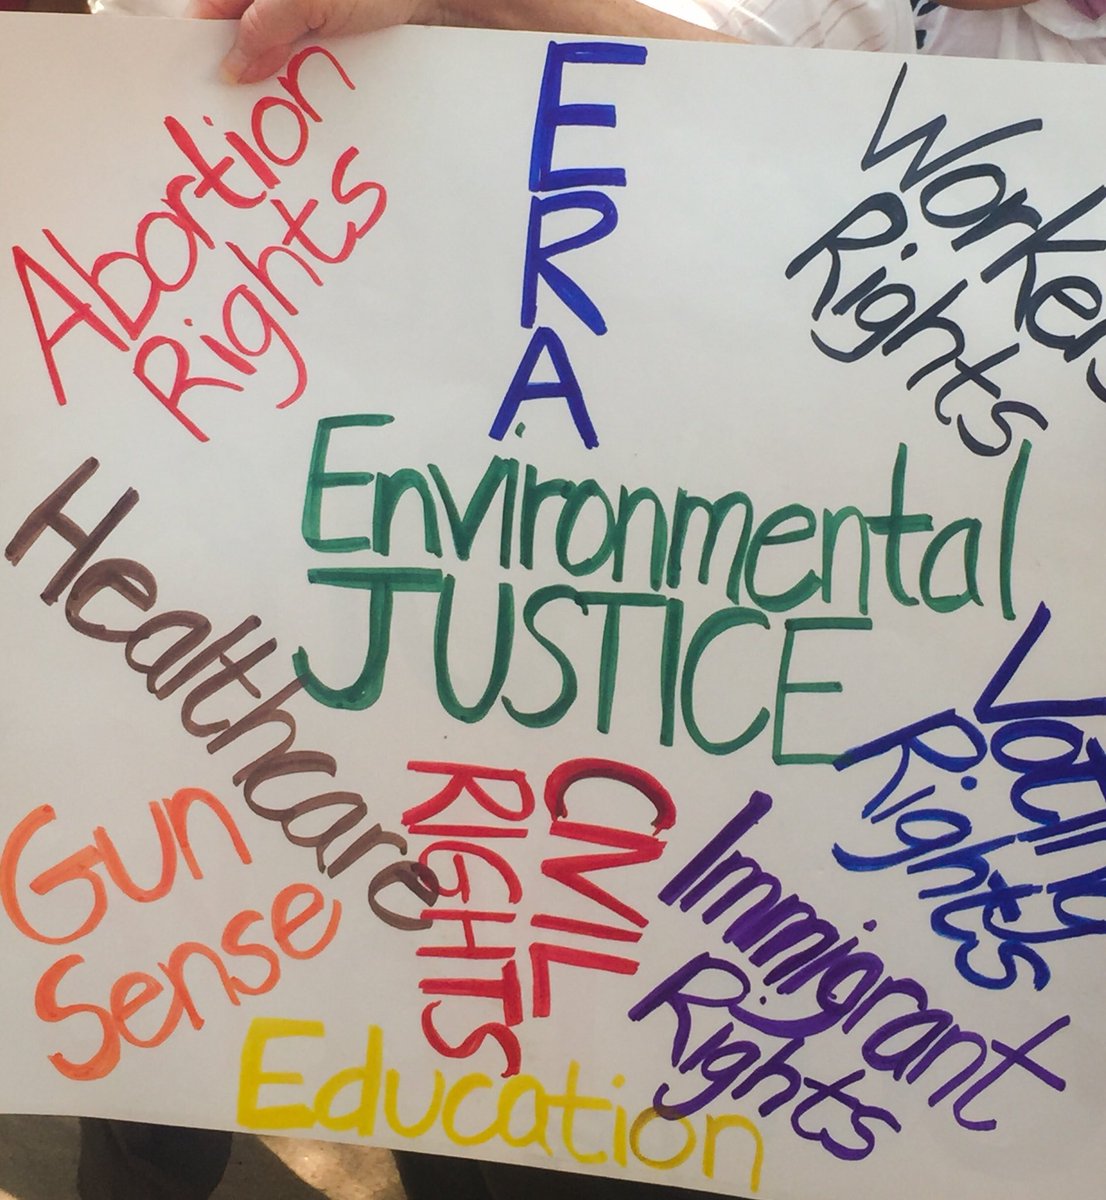 Abortion
Rights
ERA
Workers
Rights
Environmental
JUSTICE
Healthcare
Voting
Rights
Gun
Sense
CIVIL
RIGHTS
Immigrant
Rights
Education